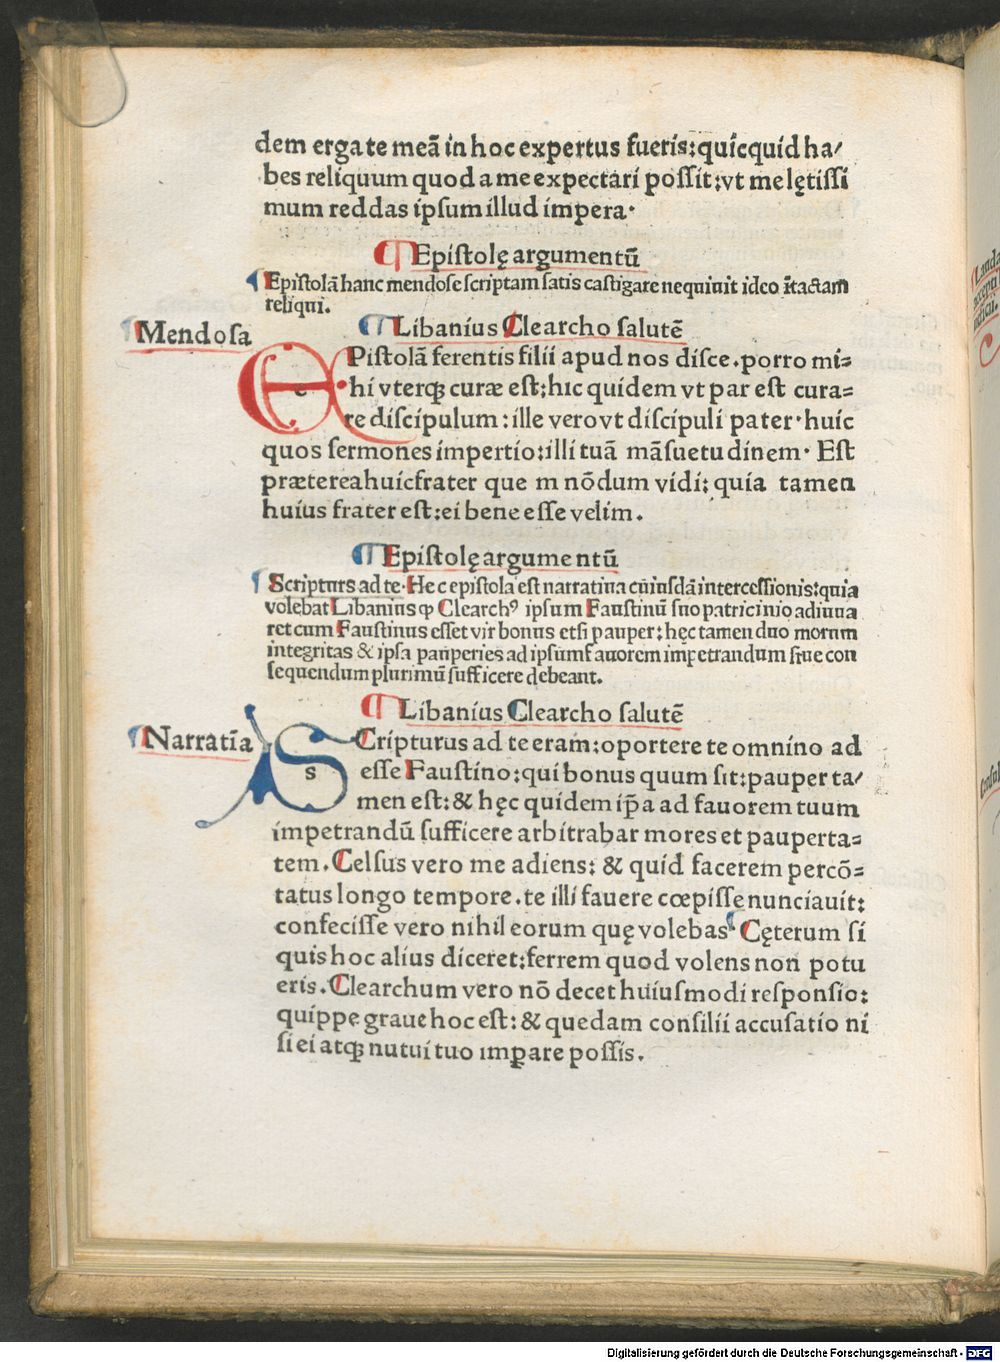 dem erga te meā in hoc expertus fueris: quicquid ha/
bes reliquum quod a me expectari possit: vt me lętissi
mum reddas ipsum illud impera·
¶ Epistolę argumentū
¶ Epistolā hanc mendose scriptam satis castigare nequiuit ideo ītactam
reliqui.
¶ Mendosa
¶ Libanius Clearcho salutē
EPistolā ferentis filii apud nos disce. porro mi=
hi vterqꝫ curæ est; hic quidem vt par est cura=
re discipulum: ille vero vt discipuli pater· huic
quos sermones impertio: illi tuā māsuetudinem· Est
præterea huic frater que m nōdum vidi: quia tamen
huius frater est: ei bene esse velim.
¶ Epistolę argumentū
¶ Scripturs ad te· Hec epistola est narratiua cuiusdā intercessionis: quia
volebat Libanius ꝙ Clearchꝰ ipsum Faustinū suo patricinio adiuua
ret cum Faustinus esset vir bonus etsi pauper: hęc tamen duo morum
integritas & ipsa pauperies ad ipsum fauorem impetrandum siue con
sequendum plurimū sufficere debeant.
¶ Libanius Clearcho salutē
¶ Narratīa
SCripturus ad te eram: oportere te omnino ad
esse Faustino: qui bonus quum sit: pauper ta/
men est: & hęc quidem ip̄a ad fauorem tuum
impetrandū sufficere arbitrabar mores et pauperta=
tem. Celsus vero me adiens: & quid facerem percō=
tatus longo tempore. te illi fauere cœpisse nunciauit:
confecisse vero nihil eorum quę volebas ¶ Cęterum si
quis hoc alius diceret: ferrem quod volens non potu
eris. Clearchum vero nō decet huiusmodi responsio:
quippe graue hoc est: & quedam consilii accusatio ni
si ei atqꝫ nutui tuo imꝑare possis.
Digitalisierung gefördert durch die Deutsche Forschungsgemeinschaft - DFG